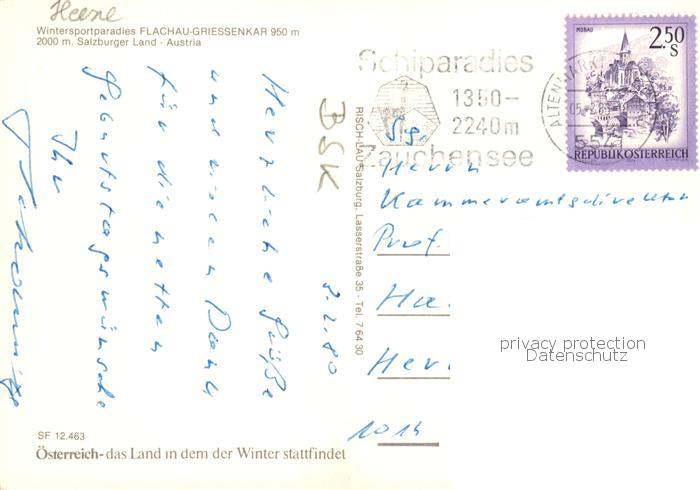 Heene
Wintersportparadies FLACHAU-GRIESSENKAR 950 m
2000 m. Salzburger Land - Austria
Herzliche Grüße
und vielen Dank
für die netten
Geburtstagswünsche
Ihr
2.2.80
BSK
RISCH-LAU Salzburg, Lasserstraße 35 - Tel. 7 64 30
Schiparadies
1350-
2240m
Zauchensee
ALTENMARKT
5541
MURAU
2.50
S
REPUBLIK ÖSTERREICH
S.g.
Herrn
Kammeramtsdirektor
Prof.
Ha
Her
1014
privacy protection
Datenschutz
SF 12.463
Österreich - das Land in dem der Winter stattfindet